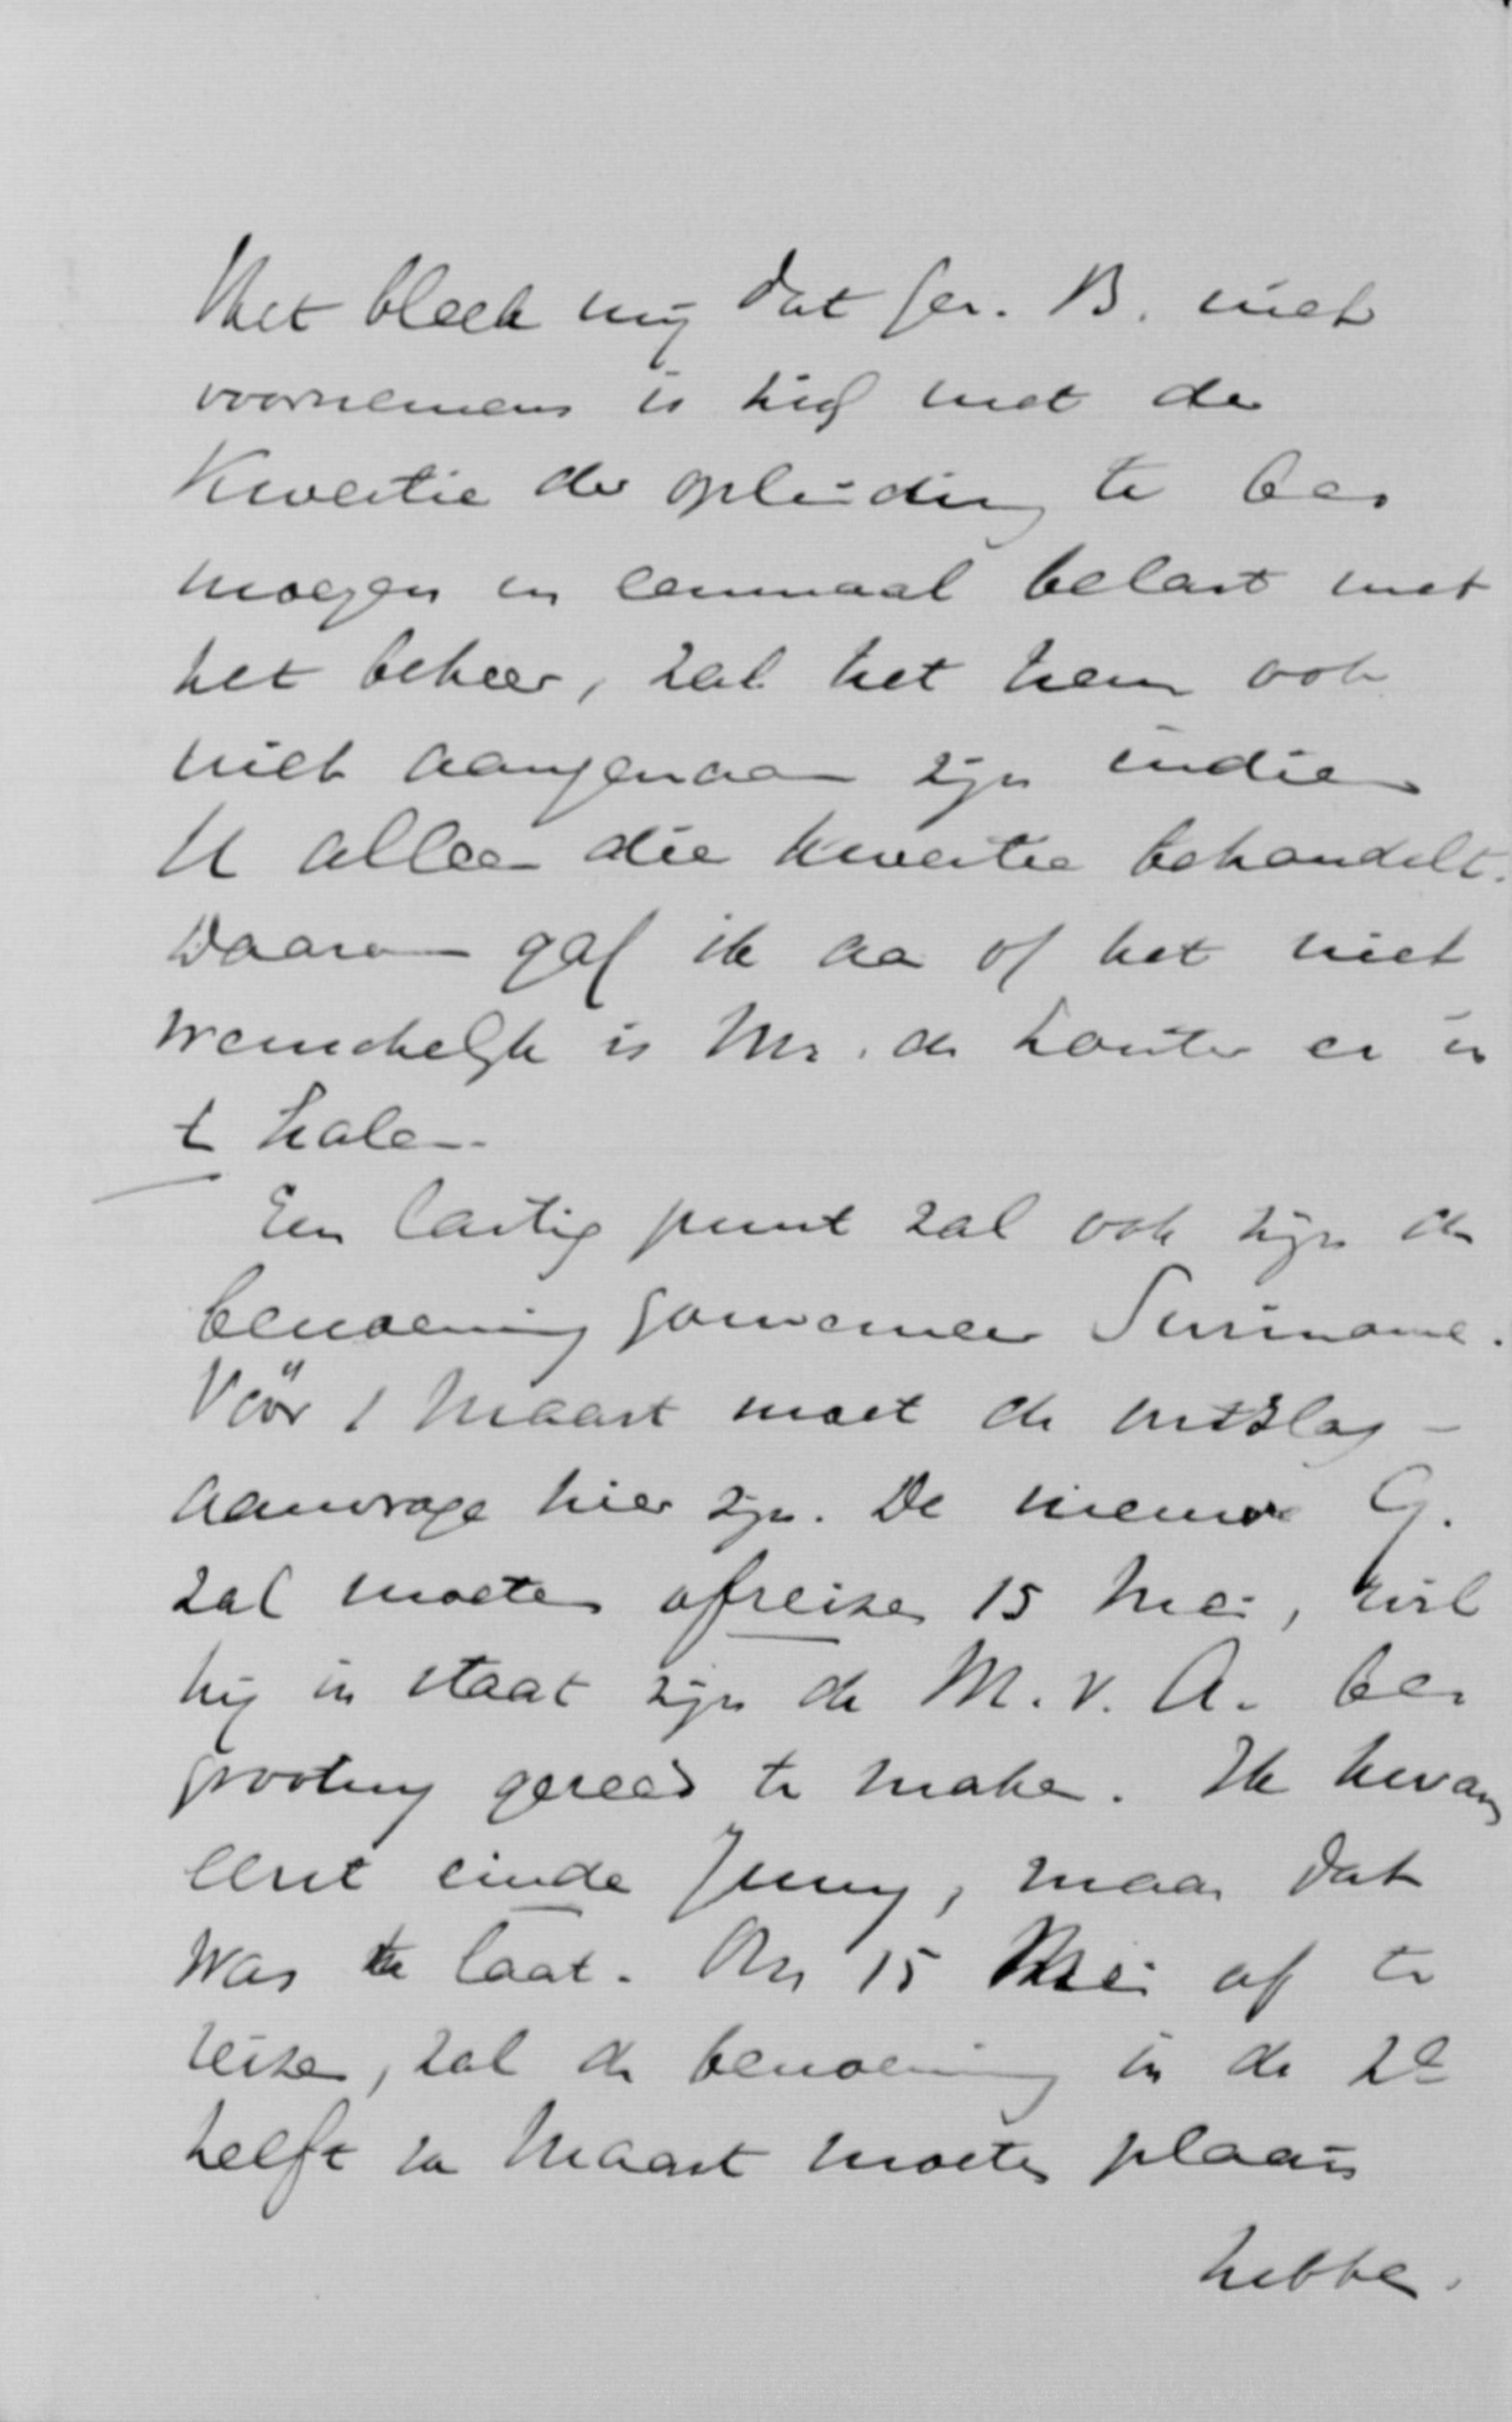 Het bleek mij dat Jer. B. niet
voornemens is zich met de
Kwestie der opleiding te be-
moeyen en eenmaal belast met
het beheer, zal het hem ook
niet aangenaam zijn indien
U alleen die kwestie behandelt.
Daarom gaf ik aan of het niet
wenschelijk is Mr. de Louter er in
te halen.
Een lastig punt zal ook zijn de
benoeming Gouverneur Suriname.
Vóór 1 Maart moet de ontslag-
aanvrage hier zijn. De nieuwe G.
zal moeten afreizen 15 Mei, wil
hij in staat zijn de M. v. A. be-
grooting gereed te maken. Ik kwam
eerst einde Juny, maar dat
was te laat. Om 15 Mei af te
reizen, zal de benoeming in de 2e
helft van Maart moeten plaats
hebben.